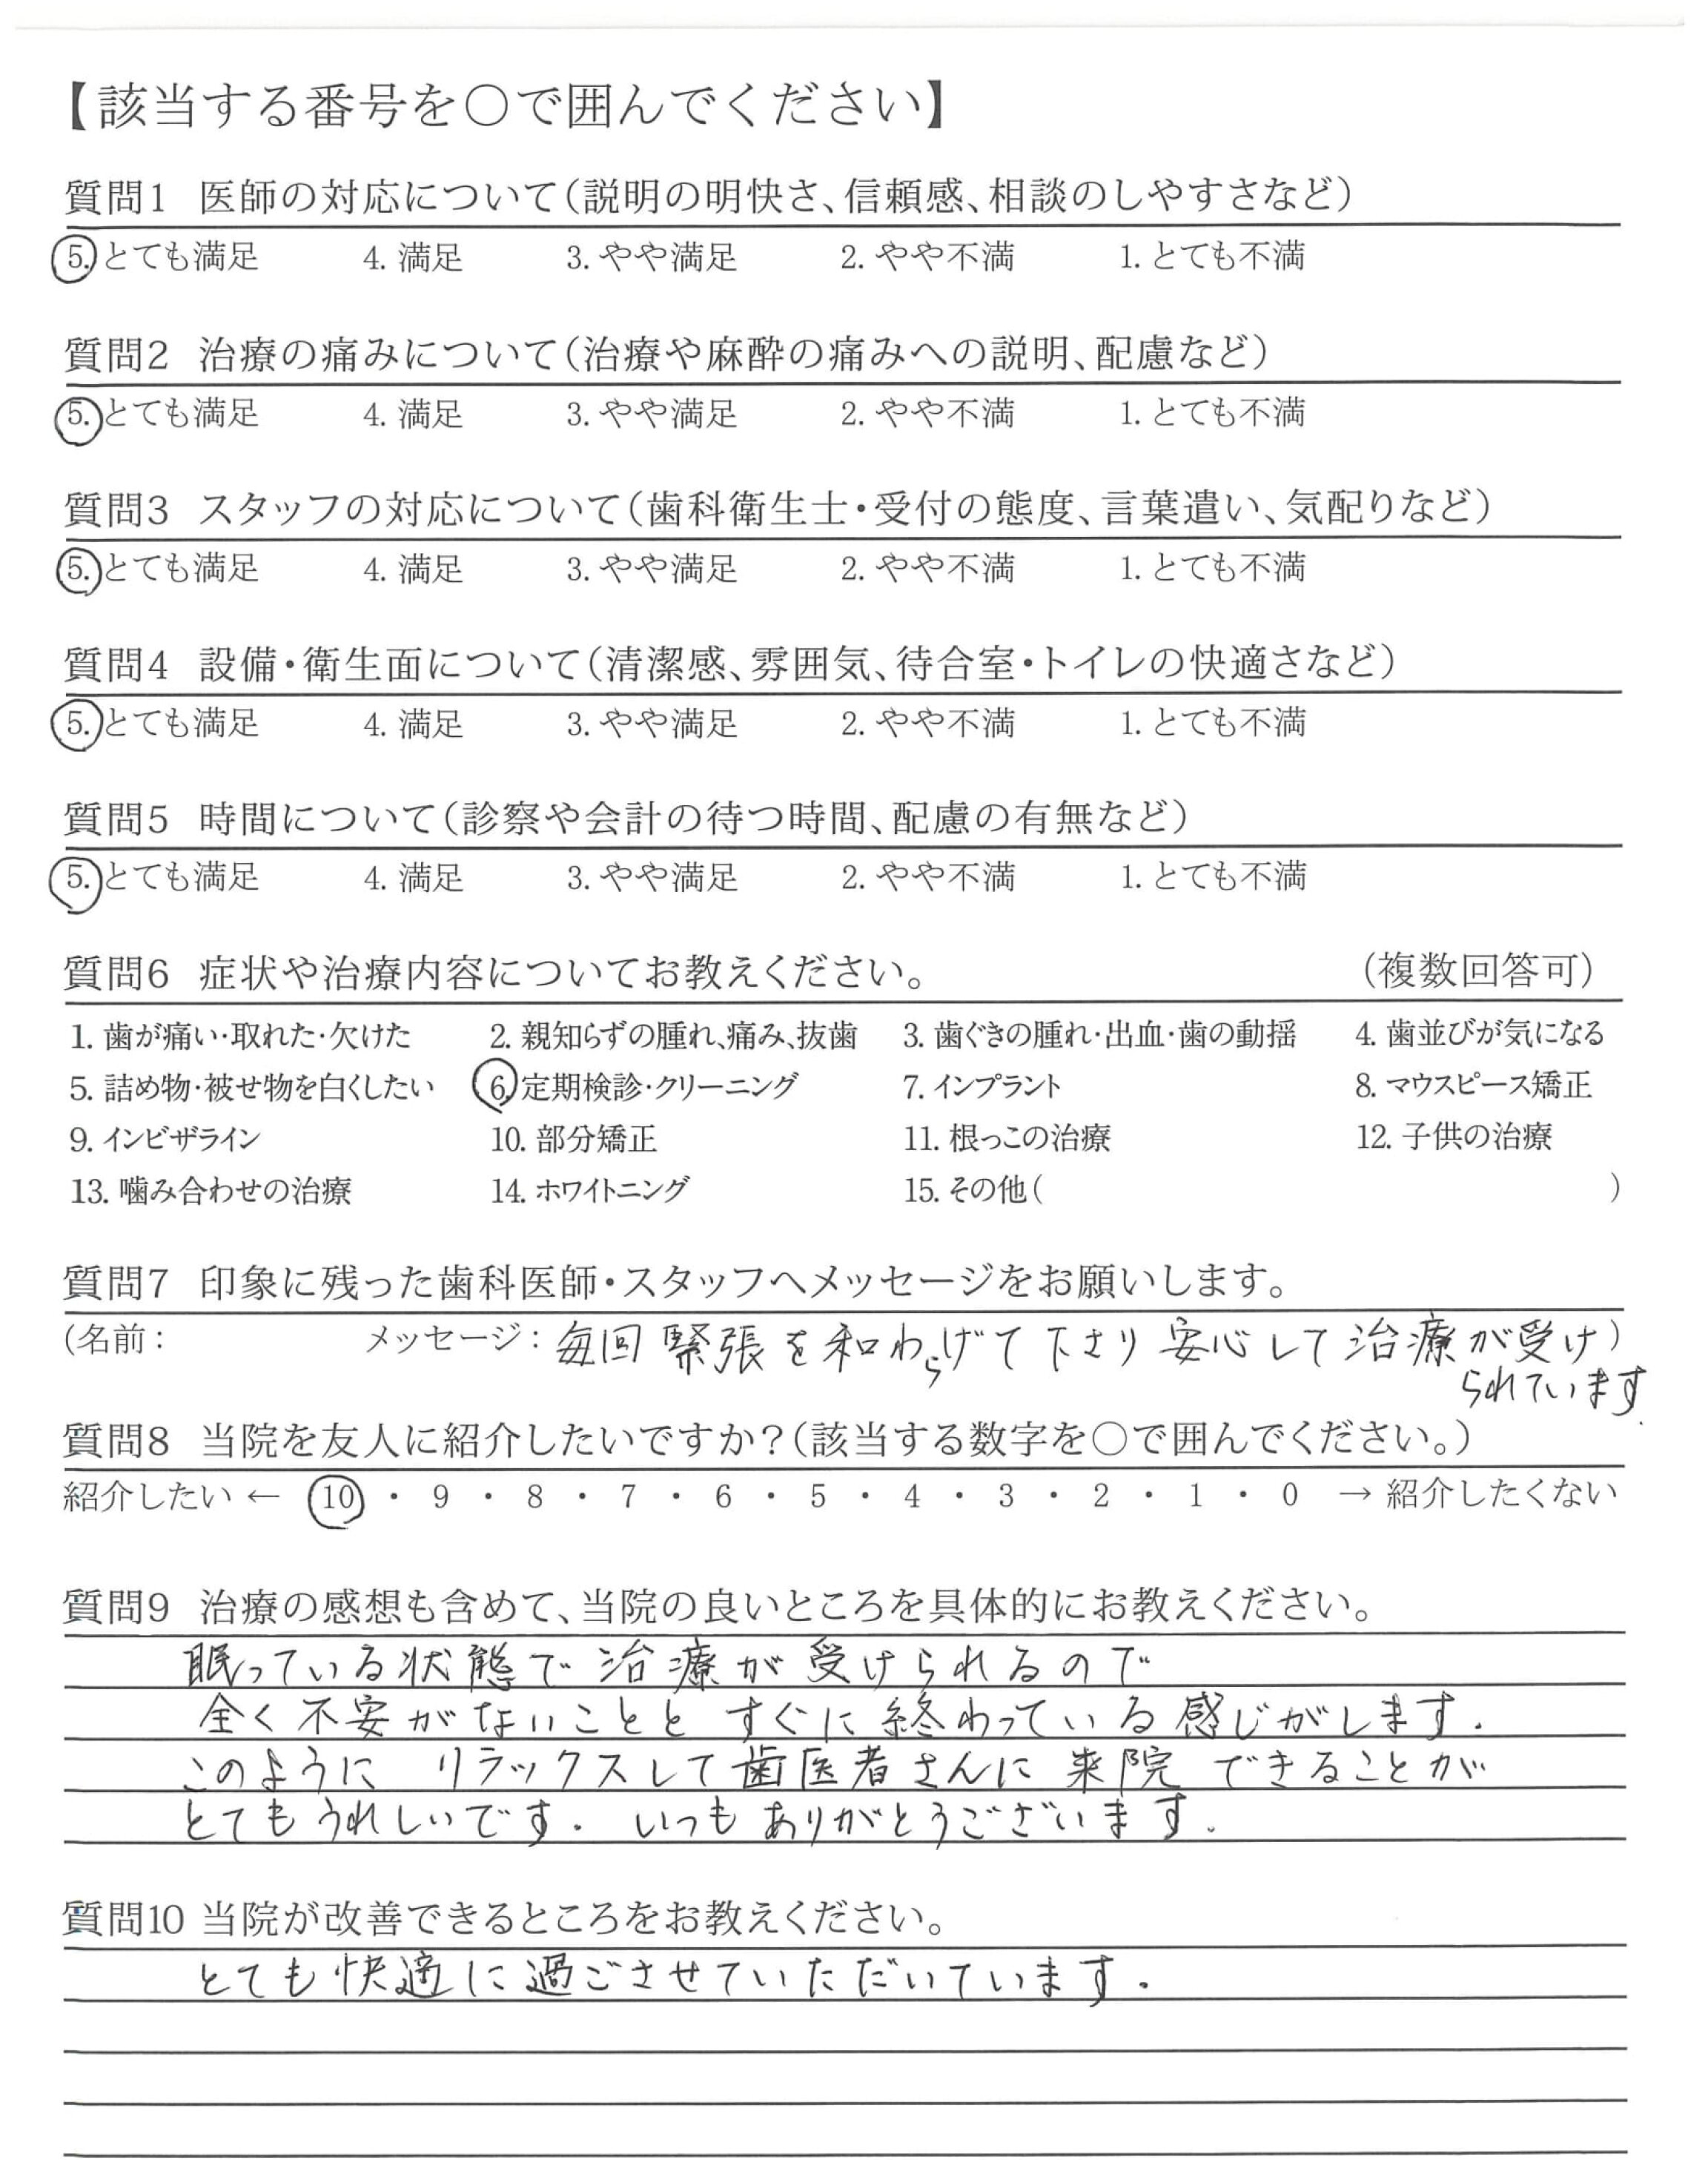 【該当する番号を○で囲んでください】
質問1 医師の対応について(説明の明快さ、信頼感、相談のしやすさなど)
5. とても満足 4. 満足 3. やや満足 2. やや不満 1. とても不満
質問2 治療の痛みについて(治療や麻酔の痛みへの説明、配慮など)
5. とても満足 4. 満足 3. やや満足 2. やや不満 1. とても不満
質問3 スタッフの対応について(歯科衛生士・受付の態度、言葉遣い、気配りなど)
5. とても満足 4. 満足 3. やや満足 2. やや不満 1. とても不満
質問4 設備・衛生面について(清潔感、雰囲気、待合室・トイレの快適さなど)
5. とても満足 4. 満足 3. やや満足 2. やや不満 1. とても不満
質問5 時間について(診察や会計の待つ時間、配慮の有無など)
5. とても満足 4. 満足 3. やや満足 2. やや不満 1. とても不満
質問6 症状や治療内容についてお教えください。 (複数回答可)
1. 歯が痛い・取れた・欠けた 2. 親知らずの腫れ、痛み、抜歯 3. 歯ぐきの腫れ・出血・歯の動揺 4. 歯並びが気になる
5. 詰め物・被せ物を白くしたい 6. 定期検診・クリーニング 7. インプラント 8. マウスピース矯正
9. インビザライン 10. 部分矯正 11. 根っこの治療 12. 子供の治療
13. 噛み合わせの治療 14. ホワイトニング 15. その他( )
質問7 印象に残った歯科医師・スタッフへメッセージをお願いします。
(名前: メッセージ: 毎回 緊張を和わらげて下さり 安心して治療が受け)
られています.
質問8 当院を友人に紹介したいですか?(該当する数字を○で囲んでください。)
紹介したい ← 10 ・ 9 ・ 8 ・ 7 ・ 6 ・ 5 ・ 4 ・ 3 ・ 2 ・ 1 ・ 0 → 紹介したくない
質問9 治療の感想も含めて、当院の良いところを具体的にお教えください。
眠っている状態で治療が受けられるので
全く不安がないことと すぐに終わっている感じがします.
このように リラックスして歯医者さんに 来院 できることが
とてもうれしいです. いつもありがとうございます.
質問10 当院が改善できるところをお教えください。
とても快適に過ごさせていただいています.